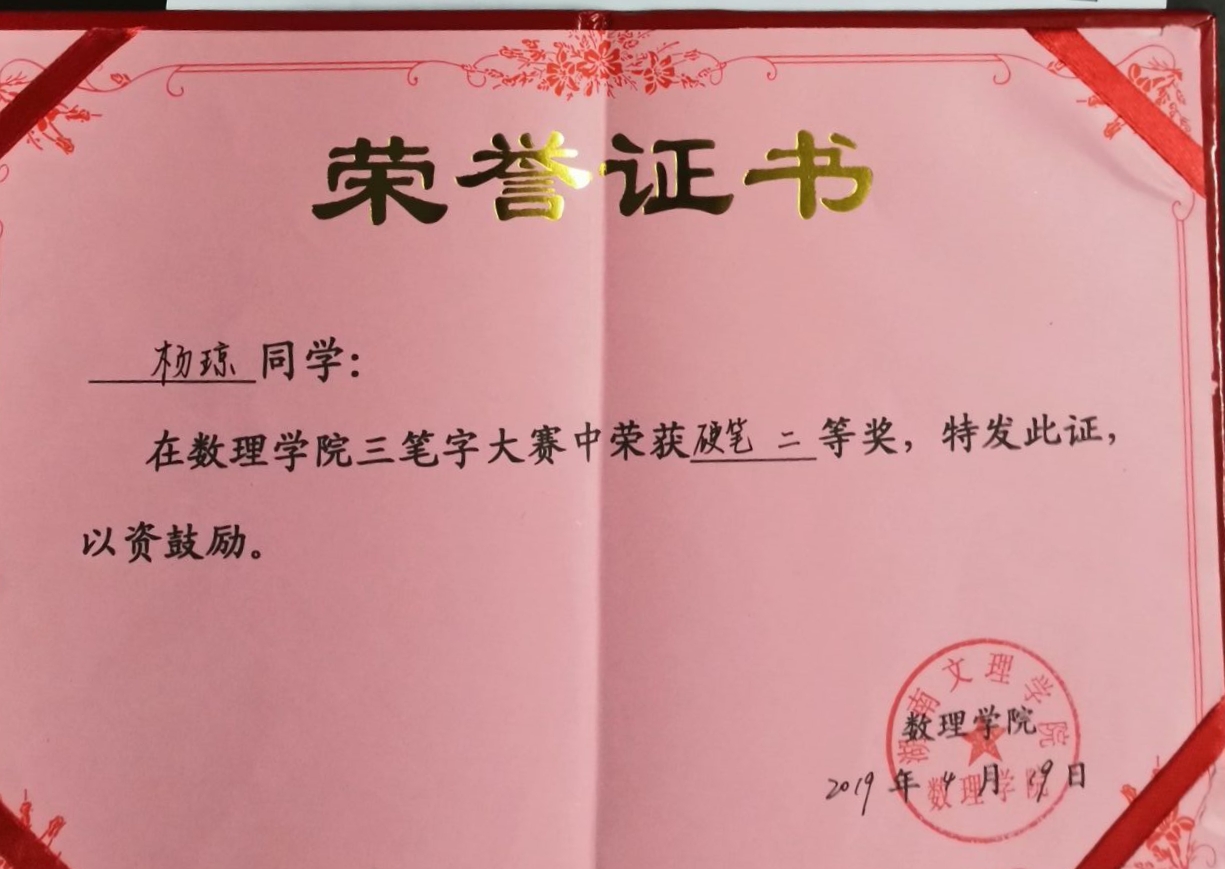 荣誉证书
杨琼 同学:
在数理学院三笔字大赛中荣获硬笔 二 等奖，特发此证，
以资鼓励。
湖南文理学院
数理学院
数理学院
2019 年 4 月 19 日